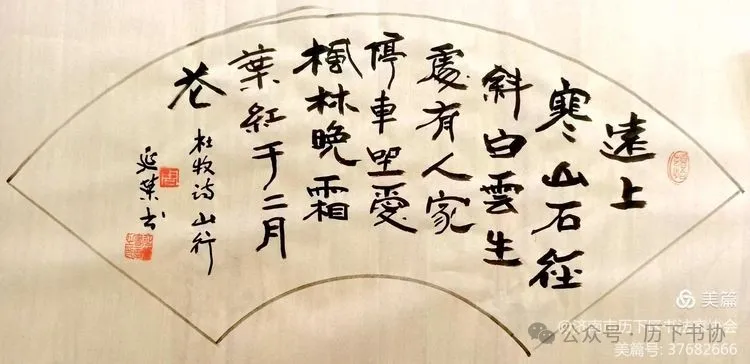 遠上
寒山石徑
斜白雲生
處有人家
停車坐愛
楓林晚霜
葉紅于二月
花
杜牧诗 山行
延荣书
美篇
@济南市历下区书法家协会
公众号 · 历下书协
美篇号: 37682666